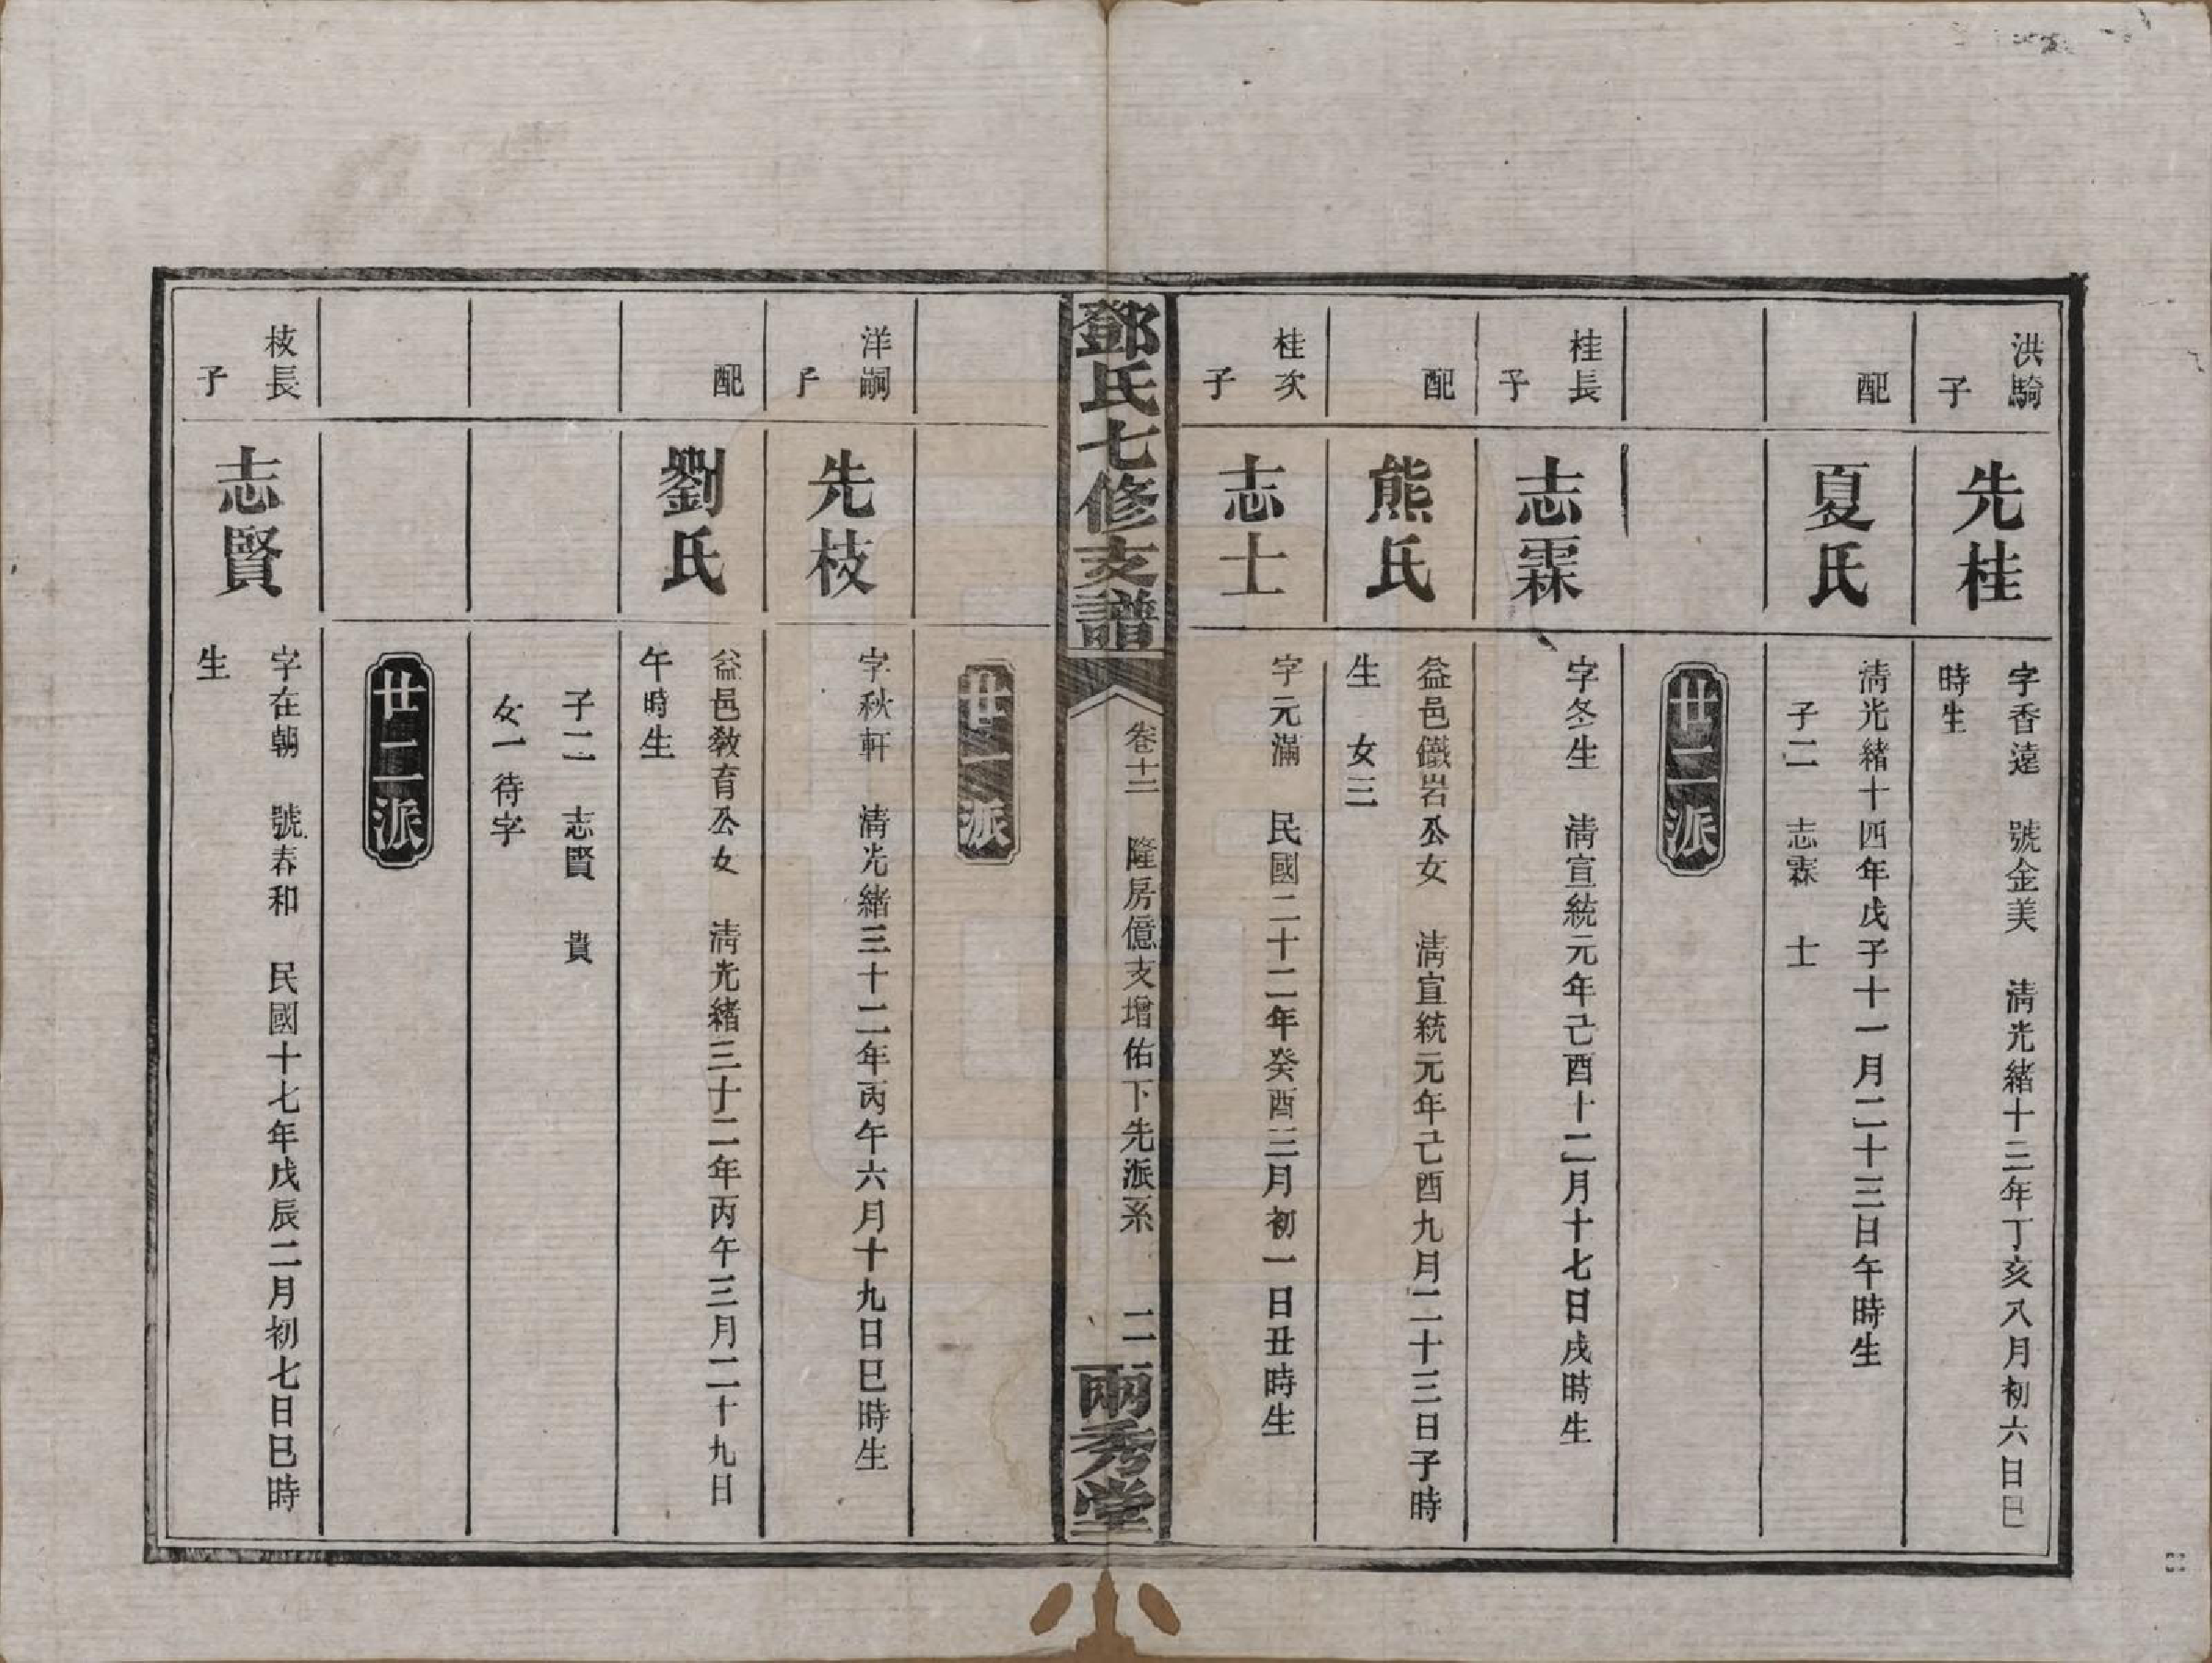 洪騎
子
先桂
字香遠　號金美　淸光緒十三年丁亥八月初六日巳
時生
配
夏氏
淸光緒十四年戊子十一月二十三日午時生
子二　志霖　士
廿二派
桂長
子
志霖
字冬生　淸宣統元年己酉十二月十七日戌時生
配
熊氏
益邑鐵岩公女　淸宣統元年己酉九月二十三日子時
生　女三
桂次
子
志士
字元滿　民國二十二年癸酉三月初一日丑時生
鄧氏七修支譜
卷十二　隆房億支增佑下先派系　二
兩秀堂
廿一派
洋嗣
子
先枝
字秋軒　淸光緒三十二年丙午六月十九日巳時生
配
劉氏
益邑敎育公女　淸光緒三十二年丙午三月二十九日
午時生
子二　志賢　貴
女一待字
廿二派
枝長
子
志賢
字在朝　號春和　民國十七年戊辰二月初七日巳時
生